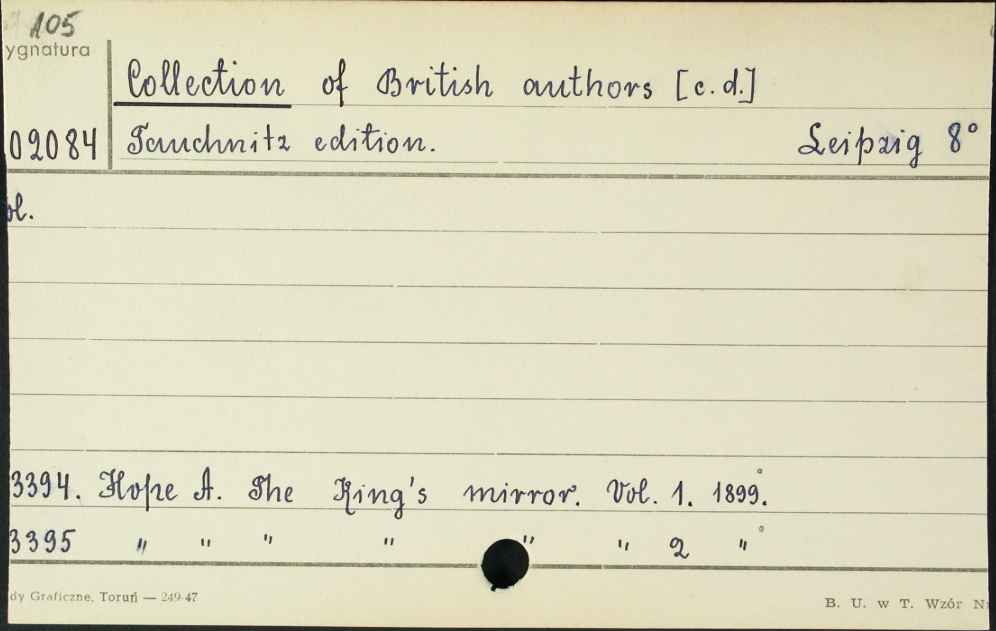 105
ygnatura
Collection of British authors [c.d.]
02084 Tauchnitz edition. Leipzig 8°
ol.
3394. Hope A. The King's mirror. Vol. 1. 1899.°
3395 " " " " " " 2 " °
dy Graficzne, Toruń — 249-47
B. U. w T. Wzór N